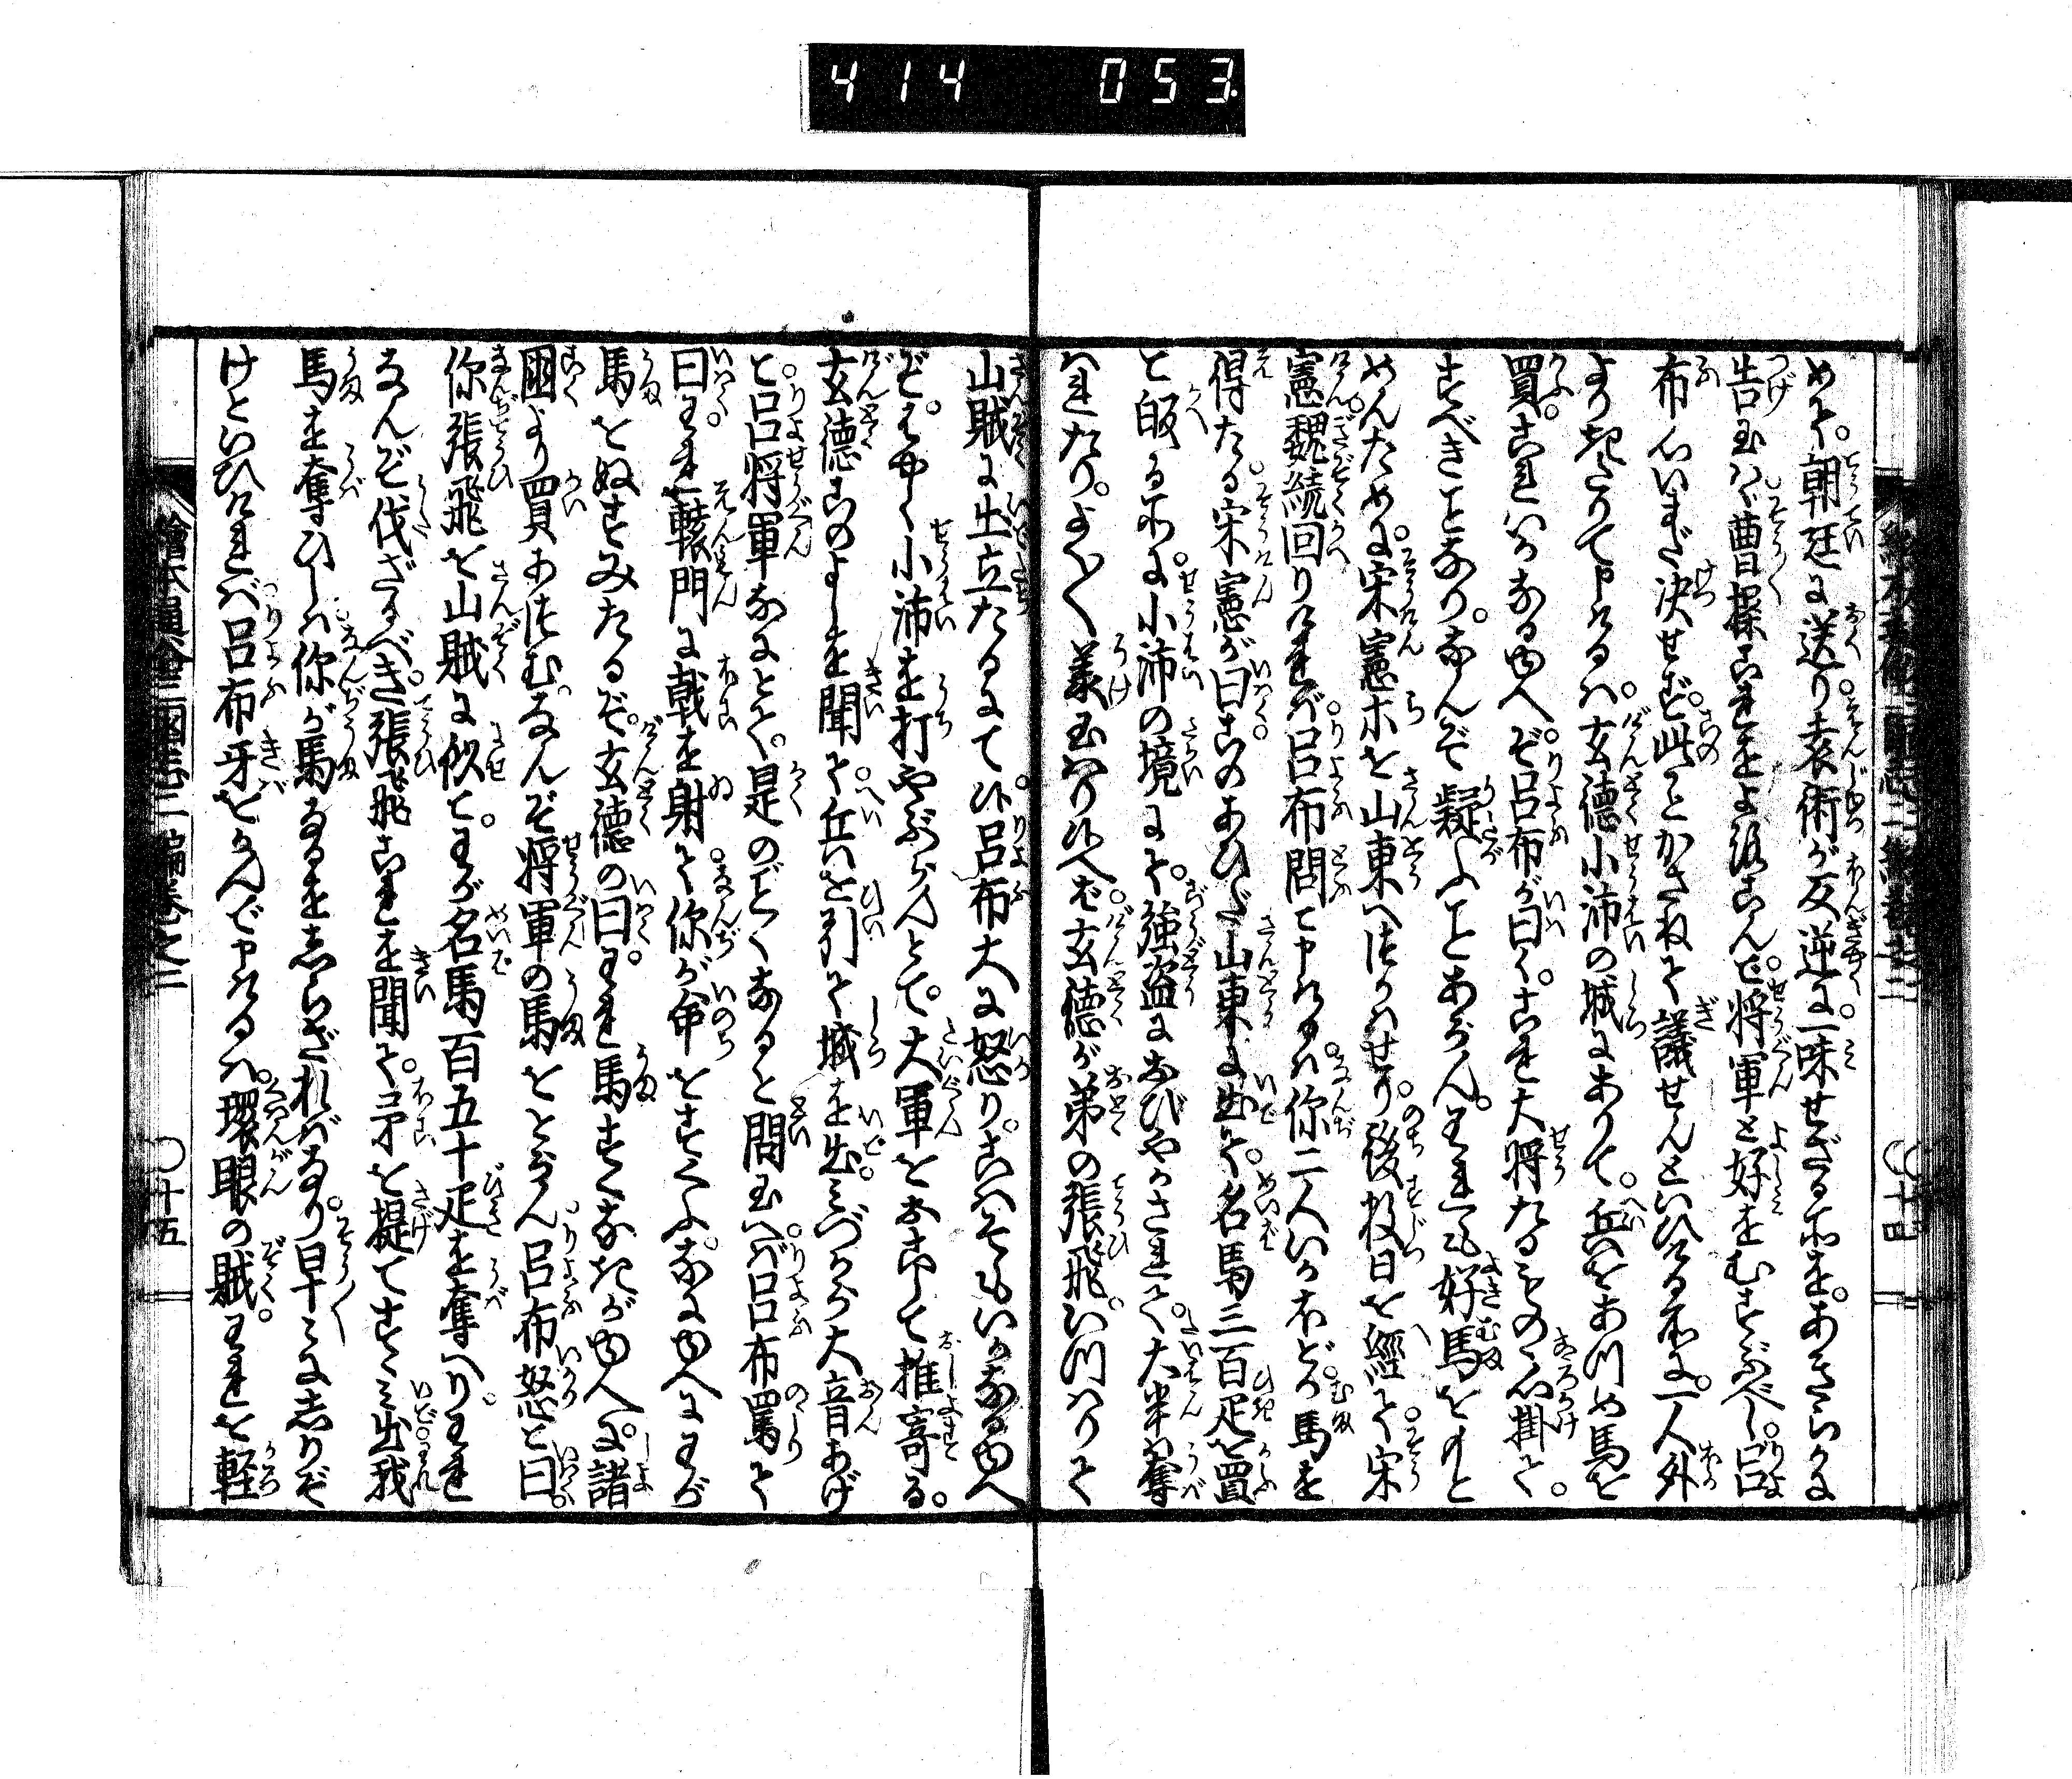 414 053.
めて。朝廷に送り。袁術が反逆に。一味せざる所を。あきらかに
告玉はゞ曹操これをよろこんで。将軍と好をむすぶべし。呂
布心いまだ決せず。此ことかさねて議せんといひける所に。一人外
より来りて申けるは。玄徳小沛の城にありて。兵をあつめ馬を
買。これいかなるゆへぞ。呂布が曰く。これ大将たるものゝ心掛て。
すべきことなり。なんぞ疑ふことあらん。われも好馬をもと
めんために。宋憲等を山東へつかはせり。後数日を経て。宋
憲。魏続回りければ。呂布問て申けるは。你二人いかほどの馬を
得たる。宋憲が曰。このあひだ山東に出て。名馬三百疋を買
と皈る所に。小沛の境にて。強盗におびやかされて。大半は奪
はれたり。よく〳〵義玉はり候へば。玄徳が弟の張飛。いつはりて
山賊に出立たるにて候。呂布大に怒り。こはそもいかなるゆへ
ぞ。はやく小沛を打やぶらんとて。大軍をおこして推寄る。
玄徳このよしを聞て。兵を引て城を出。みづから大音あげ
と。呂将軍なにとて。是のごとくなると問玉へば。呂布罵て
曰。われ轅門に戟を射て。你が命をすくふ。なにゆへにわが
馬をぬすみたるぞ。玄徳の曰。われ馬すくなきがゆへに。諸
國より買あつむ。なんぞ将軍の馬をとらん。呂布怒て曰。
你張飛を山賊に似せて。わが名馬百五十疋を奪へり。われ
なんぞ伐ざるべき。張飛これを聞て。矛を提てすゝみ出。我
馬を奪ひしは。你が馬なるをしらざればなり。早〳〵にしりぞ
けといひければ。呂布牙をかんで申けるは。環眼の賊。われを軽
繪本通俗三國志二編巻之二
〇十四
〇十五